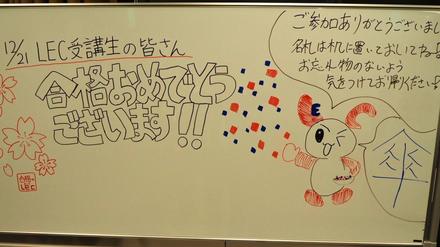 12/21 LEC受講生の皆さん
合格おめでとう
ございます!!
ご参加ありがとうございまし
名札は机に置いておいてね
お忘れ物のないよう
気をつけてお帰りください
傘
E
LEC